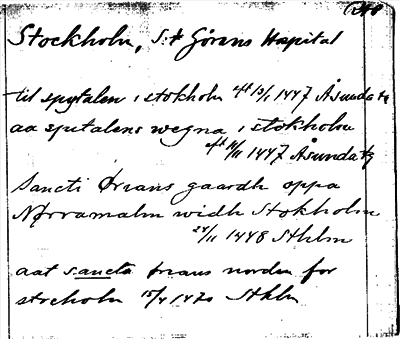 Stockholm, S:t Görans Hospital
til spytalen i stokholm aft 13/1 1447 Åsunda tg
aa spetalens wegna i stokholm
aft 11/11 1447 Åsunda tg
Sancti Ørians gaardh oppa
Nørramalm widh Stokholm
24/11 1448 Sthlm
aat sancta ørians norden for
stocholm 15/4 1470 Sthlm